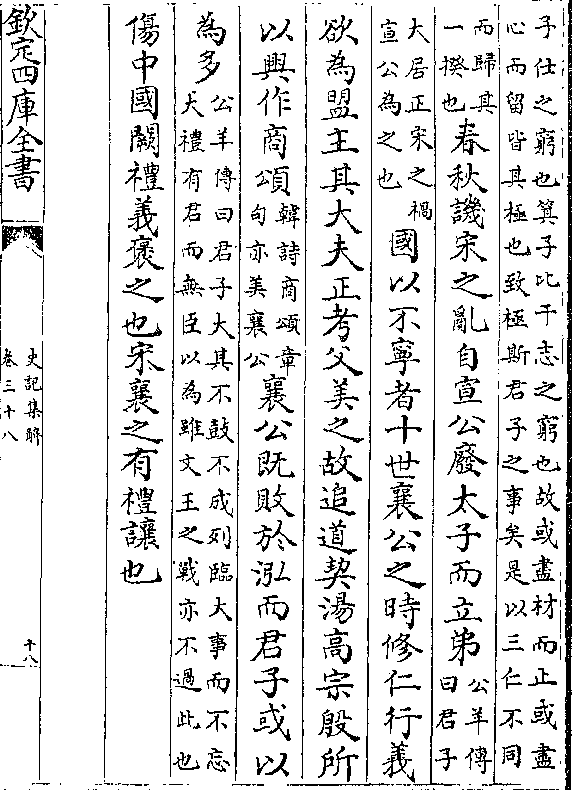 子仕之窮也箕子比干志之窮也故或盡材而止或盡
心而留皆其極也致極斯君子之事矣是以三仁不同
而歸其
一揆也
春秋譏宋之亂自宣公廢太子而立弟
公羊傳
曰君子
大居正宋之禍
宣公為之也
國以不寧者十世襄公之時修仁行義
欲為盟主其大夫正考父美之故追道契湯高宗殷所
以興作商頌
韓詩商頌章
句亦美襄公
襄公既敗於泓而君子或以
為多
公羊傳曰君子大其不鼓不成列臨大事而不忘
大禮有君而無臣以為雖文王之戰亦不過此也
傷中國闕禮義褒之也宋襄之有禮讓也
欽定四庫全書
史記集解
卷三十八
十八